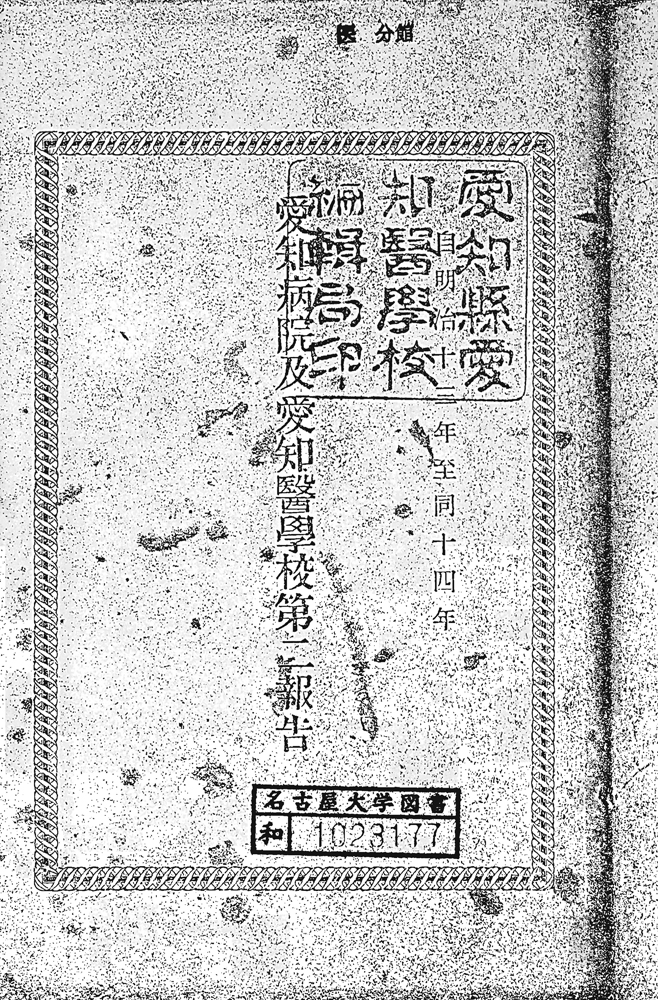 医 分館
愛知縣愛
知醫學校
編輯局印
自明治十三年至同十四年
愛知病院及愛知醫學校第二報告
名古屋大学図書
和 1023177